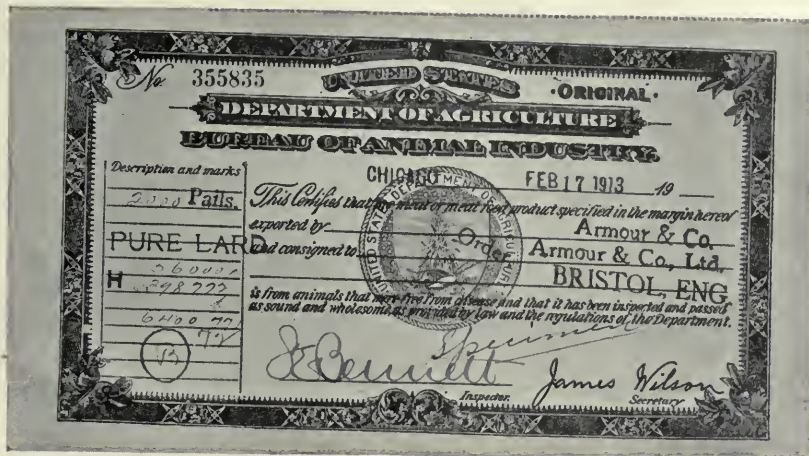 No. 355835
UNITED STATES
·ORIGINAL·
DEPARTMENT OF AGRICULTURE
BUREAU OF ANIMAL INDUSTRY.
Description and marks
2000 Pails.
PURE LARD
H
CHICAGO FEB 17 1913 19
This Certifies that the meat or meat food product specified in the margin hereof
exported by Armour & Co.
and consigned to Order Armour & Co., Ltd.
BRISTOL, ENG
is from animals that were free from disease and that it has been inspected and passed
as sound and wholesome, as provided by law and the regulations of the Department.
Specimen
Bennett
Inspector.
James Wilson
Secretary
UNITED STATES DEPARTMENT OF AGRICULTURE